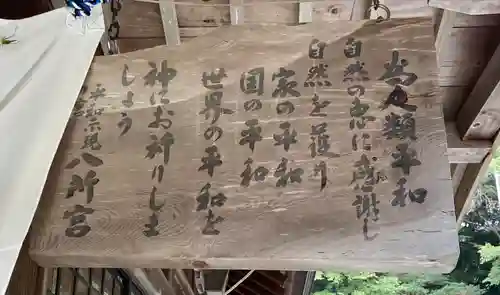 人類平和
自然の恵に感謝し
自然を護り
家の平和
国の平和
世界の平和を
神にお祈りしま
しょう
八所宮